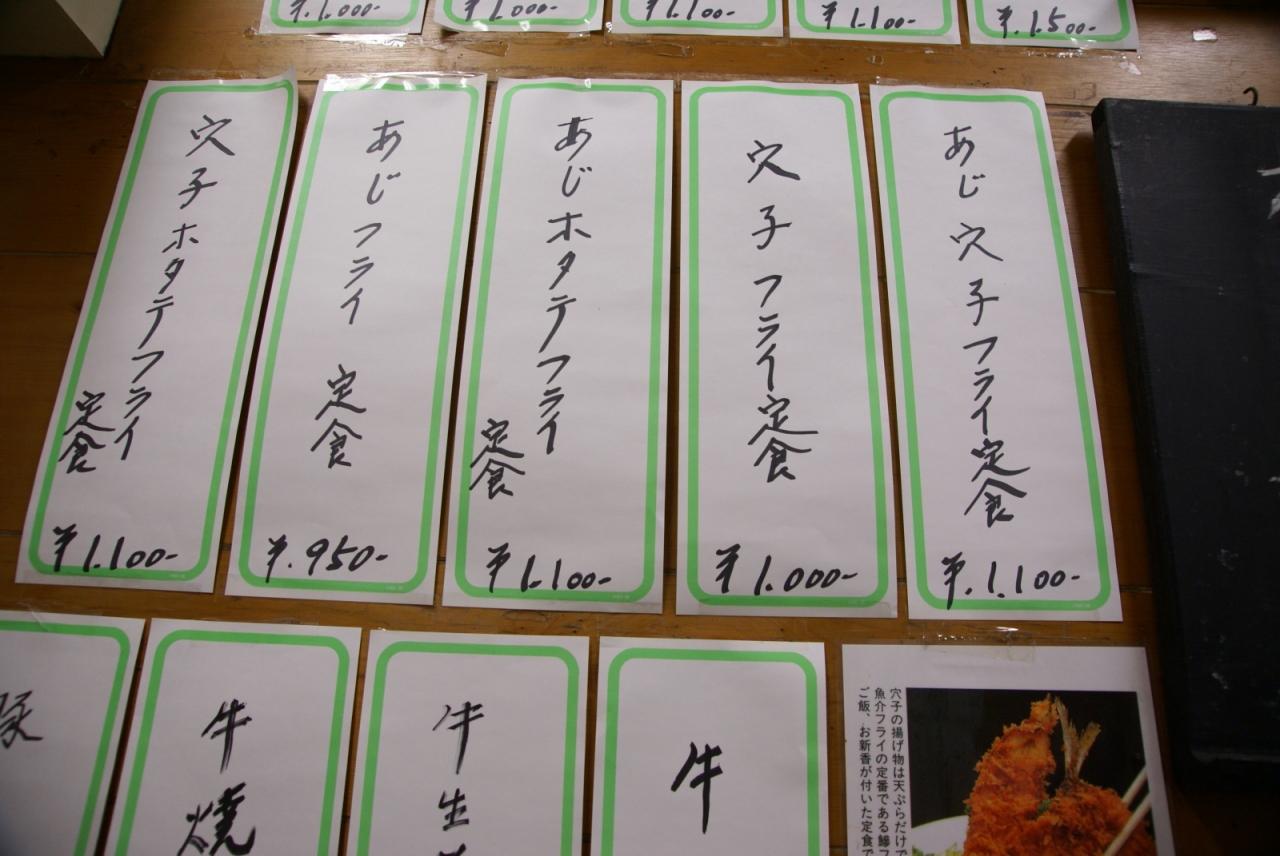 ¥.1.000-
¥1.000-
¥1.100-
¥1.100-
¥.1.500-
穴子ホタテフライ
定食
¥1.100-
あじフライ 定食
¥.950-
あじホタテフライ
定食
¥1.100-
穴子フライ定食
¥1.000-
あじ穴子フライ定食
¥.1.100-
牛焼
牛生
牛
穴子の揚げ物は天ぷらだけで
魚介フライの定番である鯵フ
ご飯、お新香が付いた定食で